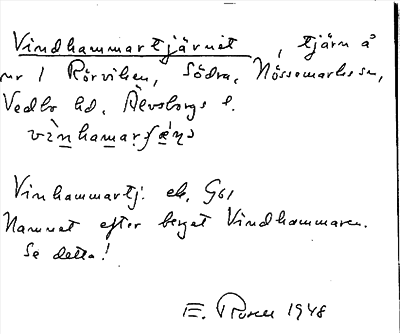 Vindhammartjärnet, tjärn å
nr 1 Rörviken, Södra, Nössemarks sn,
Vedbo hd, Älvsborgs l.
Vinhammartj. ek. G61
Namnet efter berget Vindhammaren.
Se detta!
E. 1948